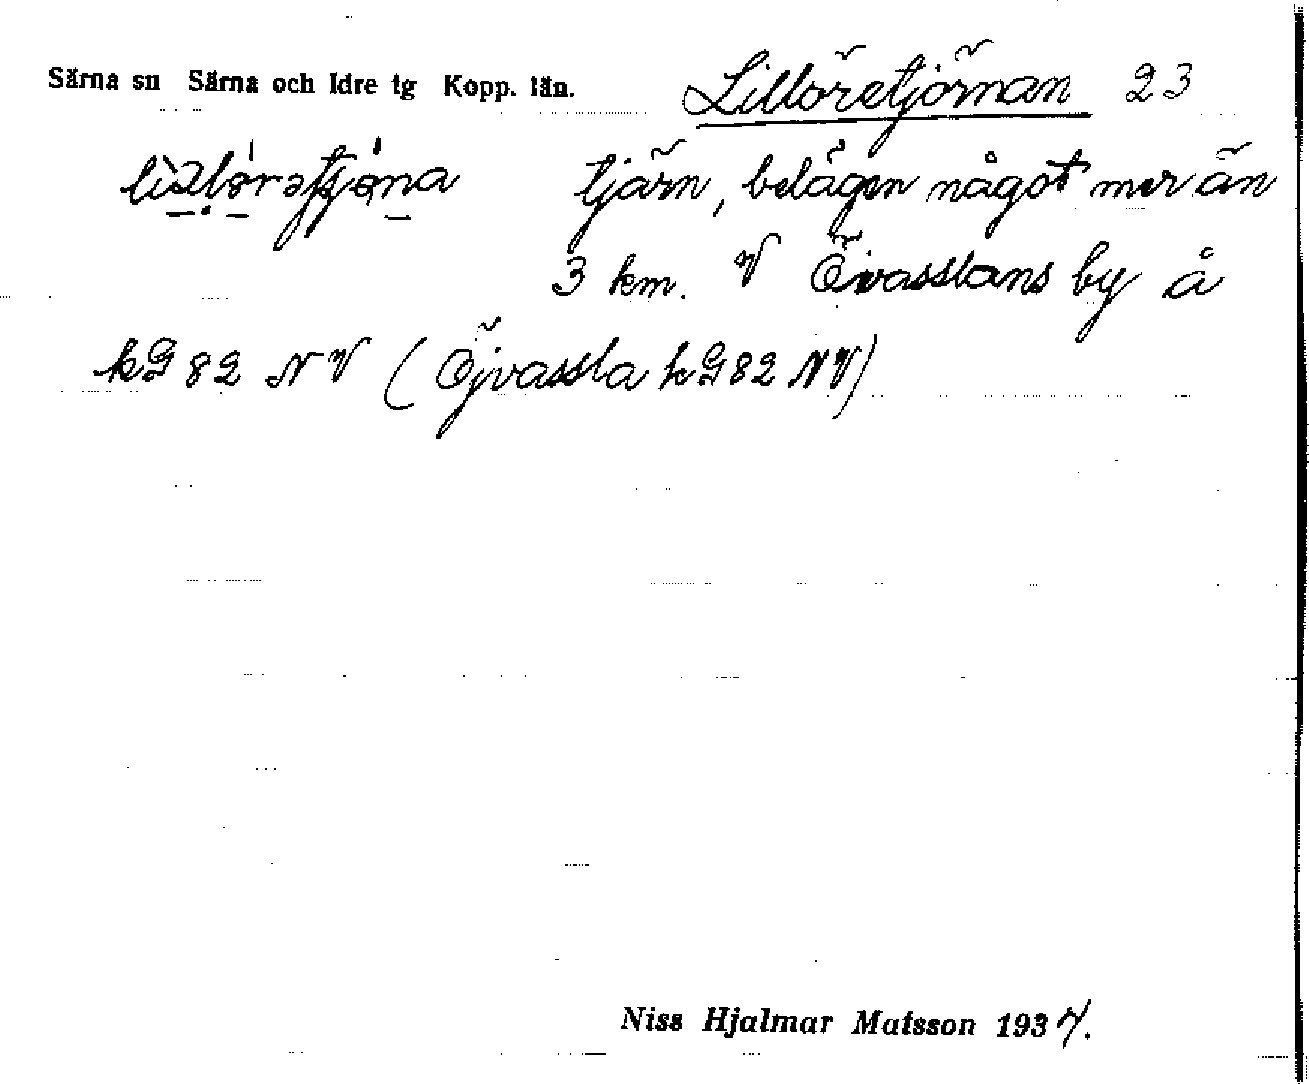 Särna sn Särna och Idre tg Kopp. län. Lillöretjörnan 23
tjärn, belägen något mer än
3 km. V Övasslans by å
kG 82 NV (Öjvassla kG82 NV)
Niss Hjalmar Matsson 1937.